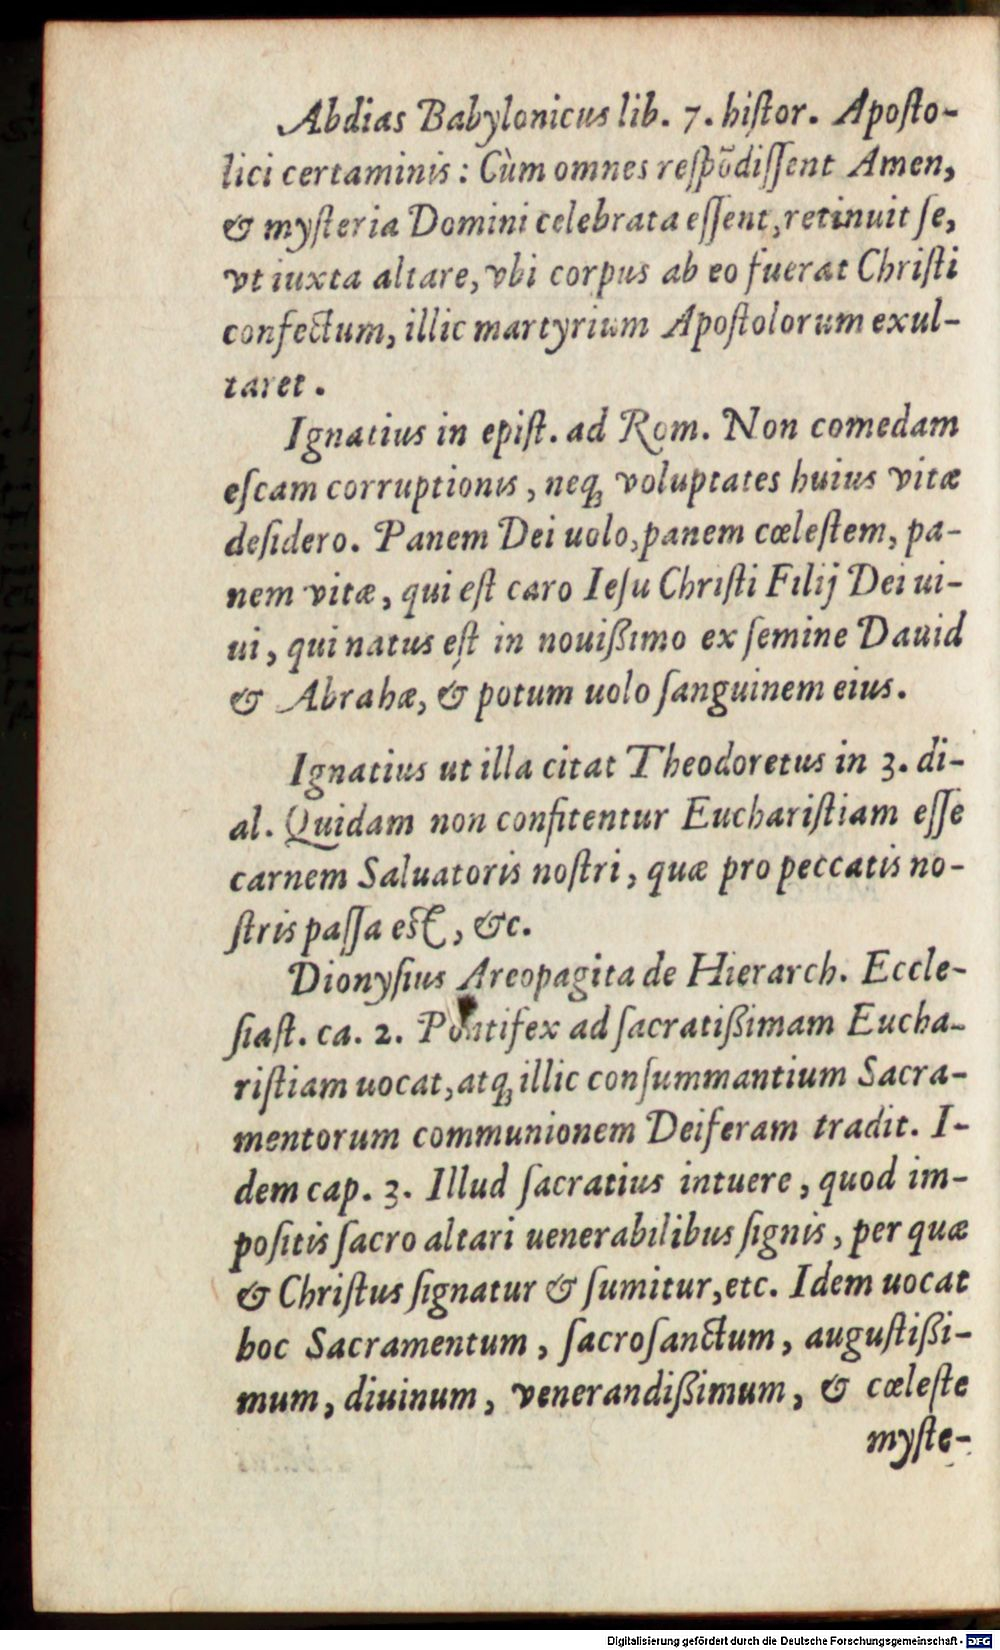 Abdias Babylonicus lib. 7. histor. Aposto-
lici certaminis: Cùm omnes respõdissent Amen,
& mysteria Domini celebrata essent, retinuit se,
vt iuxta altare, vbi corpus ab eo fuerat Christi
confectum, illic martyrium Apostolorum exul-
taret.
Ignatius in epist. ad Rom. Non comedam
escam corruptionis, neqꝫ voluptates huius vitæ
desidero. Panem Dei uolo, panem cœlestem, pa-
nem vitæ, qui est caro Iesu Christi Filij Dei ui-
ui, qui natus est in nouißimo ex semine Dauid
& Abrahæ, & potum uolo sanguinem eius.
Ignatius ut illa citat Theodoretus in 3. di-
al. Quidam non confitentur Eucharistiam esse
carnem Saluatoris nostri, quæ pro peccatis no-
stris passa est, &c.
Dionysius Areopagita de Hierarch. Eccle-
siast. ca. 2. Pontifex ad sacratißimam Eucha-
ristiam uocat, atqꝫ illic consummantium Sacra-
mentorum communionem Deiferam tradit. I-
dem cap. 3. Illud sacratius intuere, quod im-
positis sacro altari uenerabilibus signis, per quæ
& Christus signatur & sumitur, etc. Idem uocat
hoc Sacramentum, sacrosanctum, augustißi-
mum, diuinum, venerandißimum, & cœleste
myste-
Digitalisierung gefördert durch die Deutsche Forschungsgemeinschaft - DFG